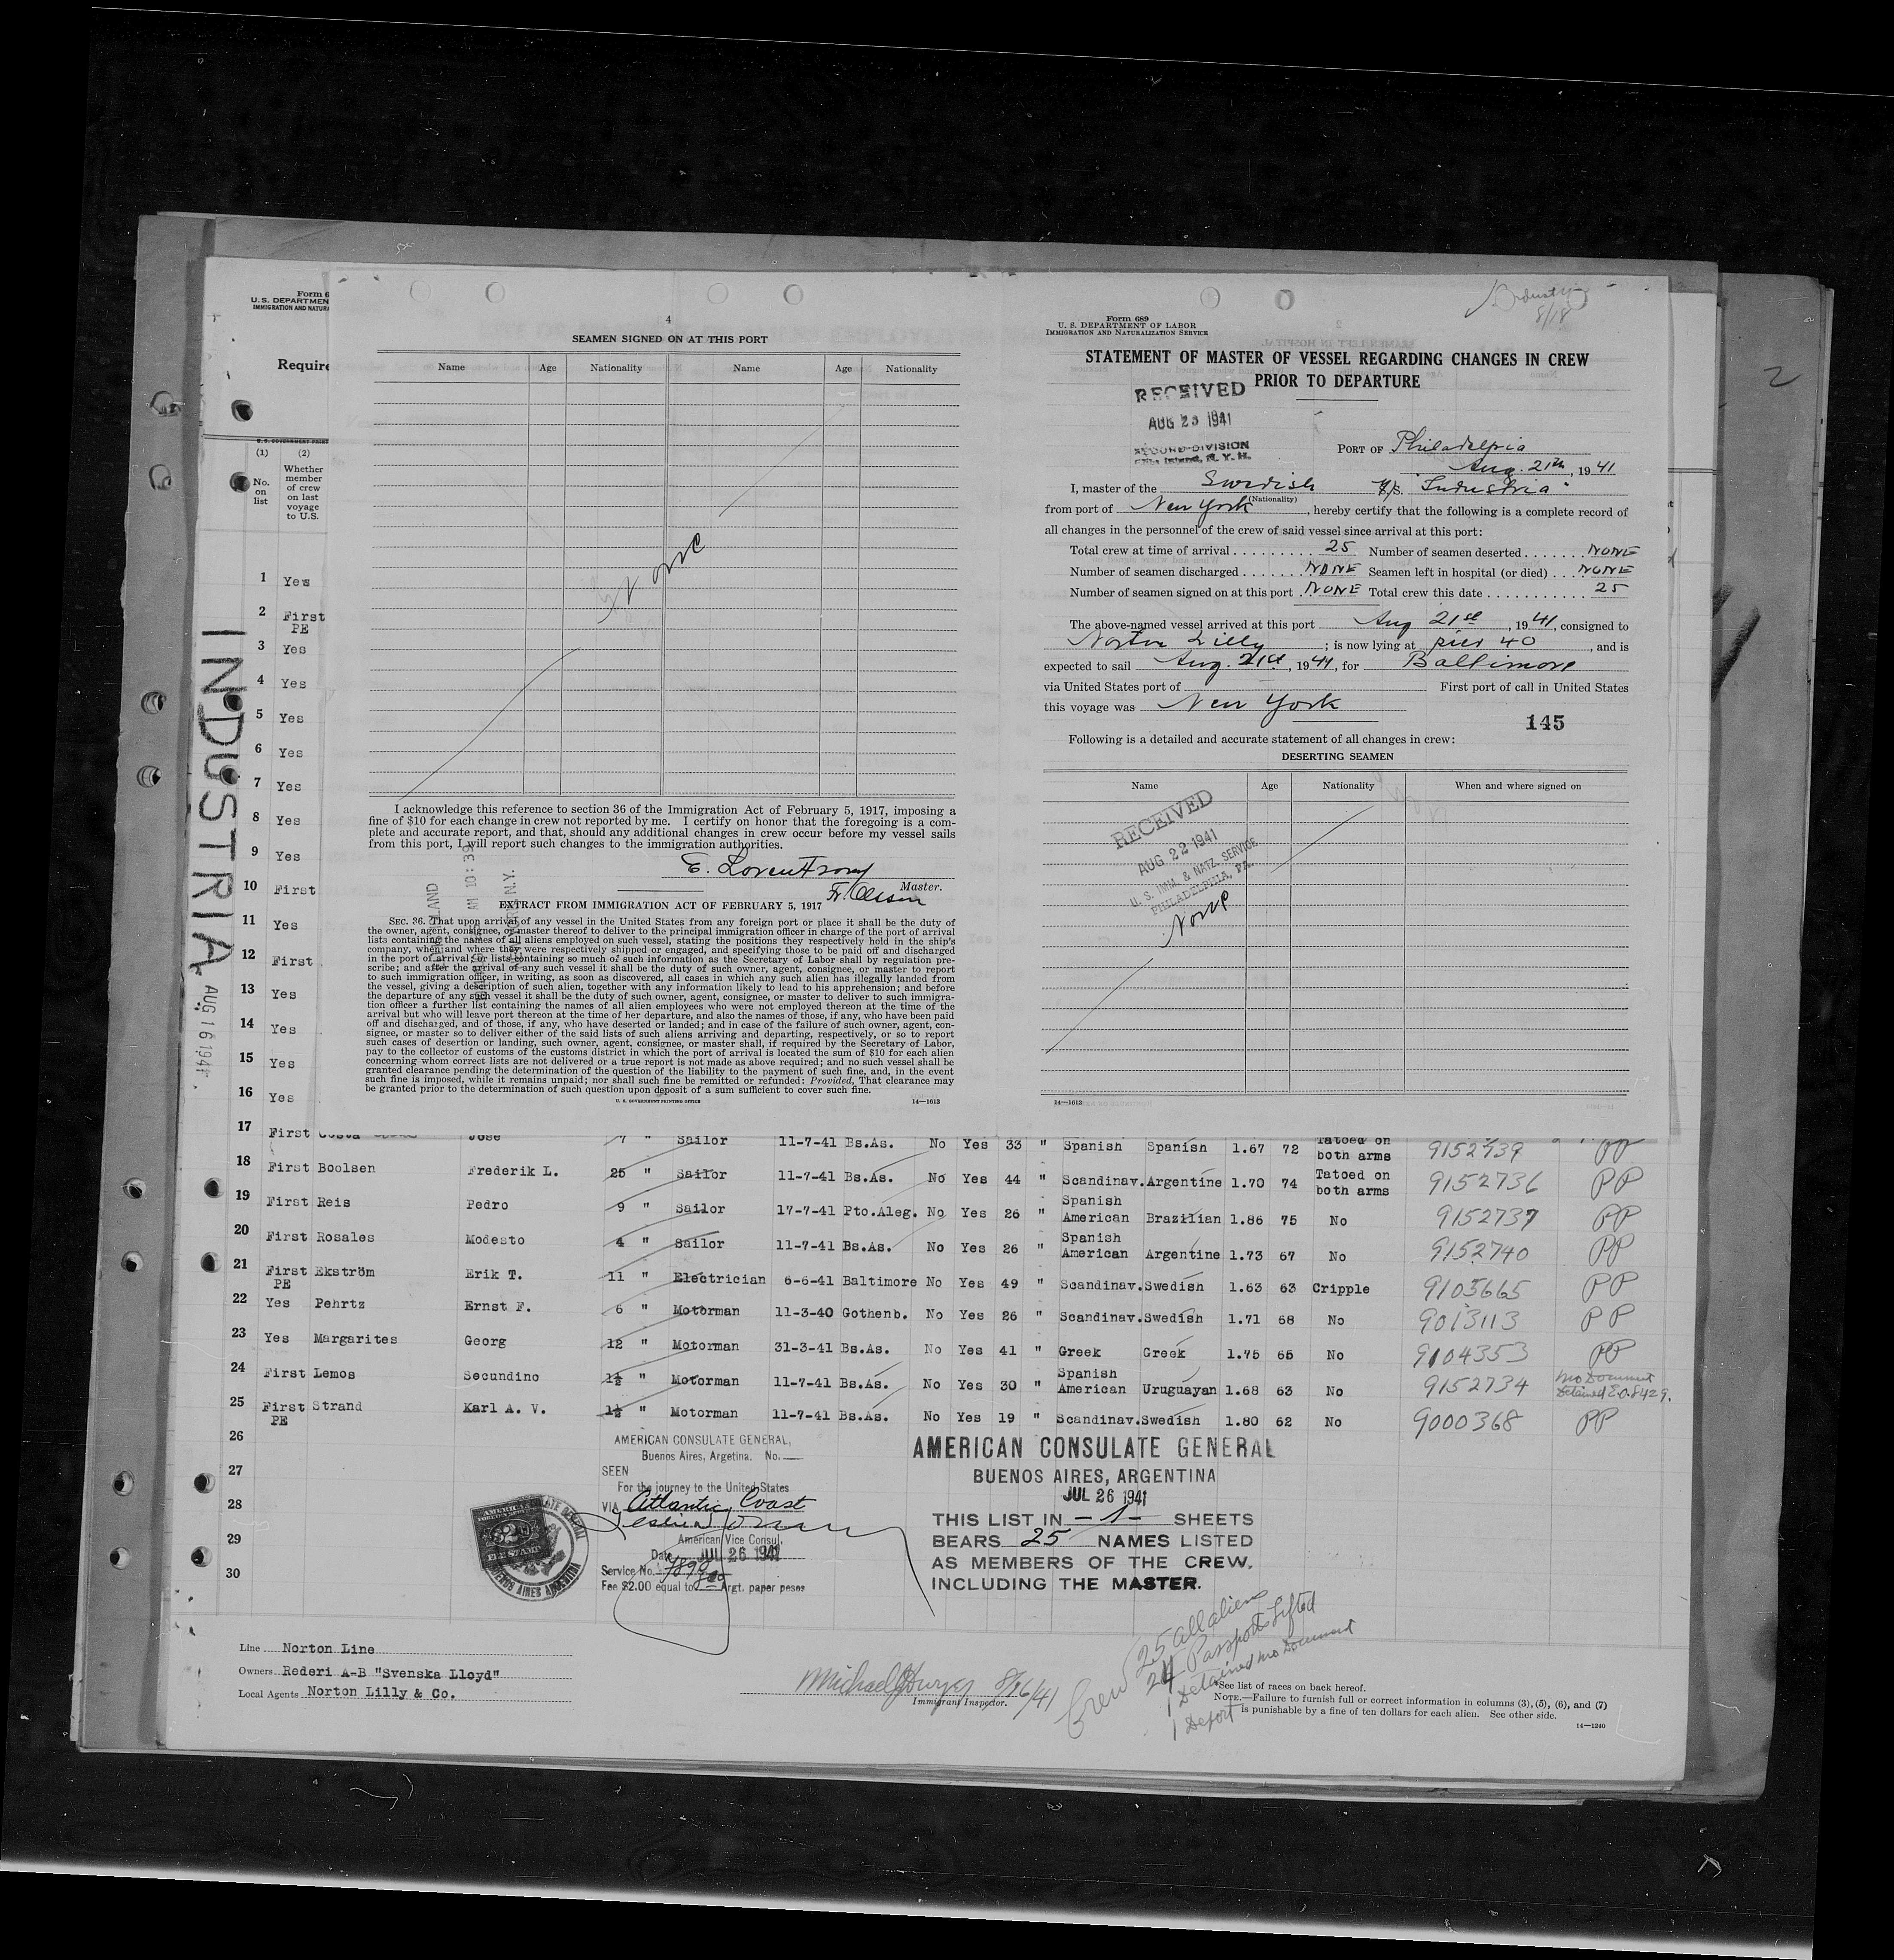 Form 6
U. S. DEPARTMEN
IMMIGRATION AND NATURA
Require
U. S. GOVERNMENT PRINT
(1) (2)
No. on list
Whether member of crew on last voyage to U.S.
1 Yes
2 First PE
3 Yes
4 Yes
5 Yes
6 Yes
7 Yes
8 Yes
9 Yes
10 First
11 Yes
12 First
13 Yes
14 Yes
15 Yes
16 Yes
INDUSTRIA
AUG 16 1941
4
SEAMEN SIGNED ON AT THIS PORT
Name Age Nationality Name Age Nationality
None
I acknowledge this reference to section 36 of the Immigration Act of February 5, 1917, imposing a
fine of $10 for each change in crew not reported by me. I certify on honor that the foregoing is a com-
plete and accurate report, and that, should any additional changes in crew occur before my vessel sails
from this port, I will report such changes to the immigration authorities.
Master.
EXTRACT FROM IMMIGRATION ACT OF FEBRUARY 5, 1917
SEC. 36. That upon arrival of any vessel in the United States from any foreign port or place it shall be the duty of
the owner, agent, consignee, or master thereof to deliver to the principal immigration officer in charge of the port of arrival
lists containing the names of all aliens employed on such vessel, stating the positions they respectively hold in the ship's
company, when and where they were respectively shipped or engaged, and specifying those to be paid off and discharged
in the port of arrival; or lists containing so much of such information as the Secretary of Labor shall by regulation pre-
scribe; and after the arrival of any such vessel it shall be the duty of such owner, agent, consignee, or master to report
to such immigration officer, in writing, as soon as discovered, all cases in which any such alien has illegally landed from
the vessel, giving a description of such alien, together with any information likely to lead to his apprehension; and before
the departure of any such vessel it shall be the duty of such owner, agent, consignee, or master to deliver to such immigra-
tion officer a further list containing the names of all alien employees who were not employed thereon at the time of the
arrival but who will leave port thereon at the time of her departure, and also the names of those, if any, who have been paid
off and discharged, and of those, if any, who have deserted or landed; and in case of the failure of such owner, agent, con-
signee, or master so to deliver either of the said lists of such aliens arriving and departing, respectively, or so to report
such cases of desertion or landing, such owner, agent, consignee, or master shall, if required by the Secretary of Labor,
pay to the collector of customs of the customs district in which the port of arrival is located the sum of $10 for each alien
concerning whom correct lists are not delivered or a true report is not made as above required; and no such vessel shall be
granted clearance pending the determination of the question of the liability to the payment of such fine, and, in the event
such fine is imposed, while it remains unpaid; nor shall such fine be remitted or refunded: Provided, That clearance may
be granted prior to the determination of such question upon deposit of a sum sufficient to cover such fine.
U. S. GOVERNMENT PRINTING OFFICE 14—1613
8/18
Form 689
U. S. DEPARTMENT OF LABOR
IMMIGRATION AND NATURALIZATION SERVICE
STATEMENT OF MASTER OF VESSEL REGARDING CHANGES IN CREW
PRIOR TO DEPARTURE
RECEIVED
AUG 23 1941
SECOND DIVISION
Ellis Island, N. Y. H.
PORT OF Philadelpia
Aug. 21th, 1941
I, master of the Swedish M/S. "Industria"
(Nationality)
from port of New York, hereby certify that the following is a complete record of
all changes in the personnel of the crew of said vessel since arrival at this port:
Total crew at time of arrival 25 Number of seamen deserted NONE
Number of seamen discharged NONE Seamen left in hospital (or died) NONE
Number of seamen signed on at this port NONE Total crew this date 25
The above-named vessel arrived at this port Aug 21st, 1941, consigned to
Norton Lilly; is now lying at pier 40, and is
expected to sail Aug. 21st, 1941, for Baltimore
via United States port of First port of call in United States
this voyage was New York
145
Following is a detailed and accurate statement of all changes in crew:
DESERTING SEAMEN
Name Age Nationality When and where signed on
RECEIVED
AUG 22 1941
U. S. IMM. & NATZ. SERVICE
PHILADELPHIA, PA.
None
14—1613
2
17 First Costa Jose 7 " Sailor 11-7-41 Bs.As. No Yes 33 " Spanish Spanish 1.67 72 Tatoed on both arms 9152739 PP
18 First Boolsen Frederik L. 25 " Sailor 11-7-41 Bs.As. No Yes 44 " Scandinav. Argentine 1.70 74 Tatoed on both arms 9152736 PP
19 First Reis Pedro 9 " Sailor 17-7-41 Pto.Aleg. No Yes 26 " Spanish American Brazilian 1.86 75 No 9152737 PP
20 First Rosales Modesto 4 " Sailor 11-7-41 Bs.As. No Yes 26 " Spanish American Argentine 1.73 67 No 9152740 PP
21 First PE Ekström Erik T. 11 " Electrician 6-6-41 Baltimore No Yes 49 " Scandinav. Swedish 1.63 63 Cripple 9105665 PP
22 Yes Pehrtz Ernst F. 6 " Motorman 11-3-40 Gothenb. No Yes 26 " Scandinav. Swedish 1.71 68 No 9013113 PP
23 Yes Margarites Georg 12 " Motorman 31-3-41 Bs.As. No Yes 41 " Greek Greek 1.75 65 No 9104353 PP
24 First Lemos Secundino 1½ " Motorman 11-7-41 Bs.As. No Yes 30 " Spanish American Uruguayan 1.68 63 No 9152734 No Document Detained E.O. 8429.
25 First PE Strand Karl A. V. 1½ " Motorman 11-7-41 Bs.As. No Yes 19 " Scandinav. Swedish 1.80 62 No 9000368 PP
26
27
28
29
30
AMERICAN CONSULATE GENERAL,
Buenos Aires, Argetina. No.
SEEN
For the journey to the United States
VIA Atlantic Coast
American Vice Consul.
Date JUL 26 1941
Service No.
Fee $2.00 equal to Argt. paper pesos
$2
FEE STAMP
BUENOS AIRES ARGENTINA
AMERICAN CONSULATE GENERAL
BUENOS AIRES, ARGENTINA
JUL 26 1941
THIS LIST IN -1- SHEETS
BEARS 25 NAMES LISTED
AS MEMBERS OF THE CREW,
INCLUDING THE MASTER.
Line Norton Line
Owners Rederi A-B "Svenska Lloyd"
Local Agents Norton Lilly & Co.
Michael J Dwyer 8/16/41
Immigrant Inspector.
Crew 25 all aliens
24 Passports Lifted
1 Detained no Document
1 Deport
*See list of races on back hereof.
NOTE.—Failure to furnish full or correct information in columns (3), (5), (6), and (7)
is punishable by a fine of ten dollars for each alien. See other side.
14—1240